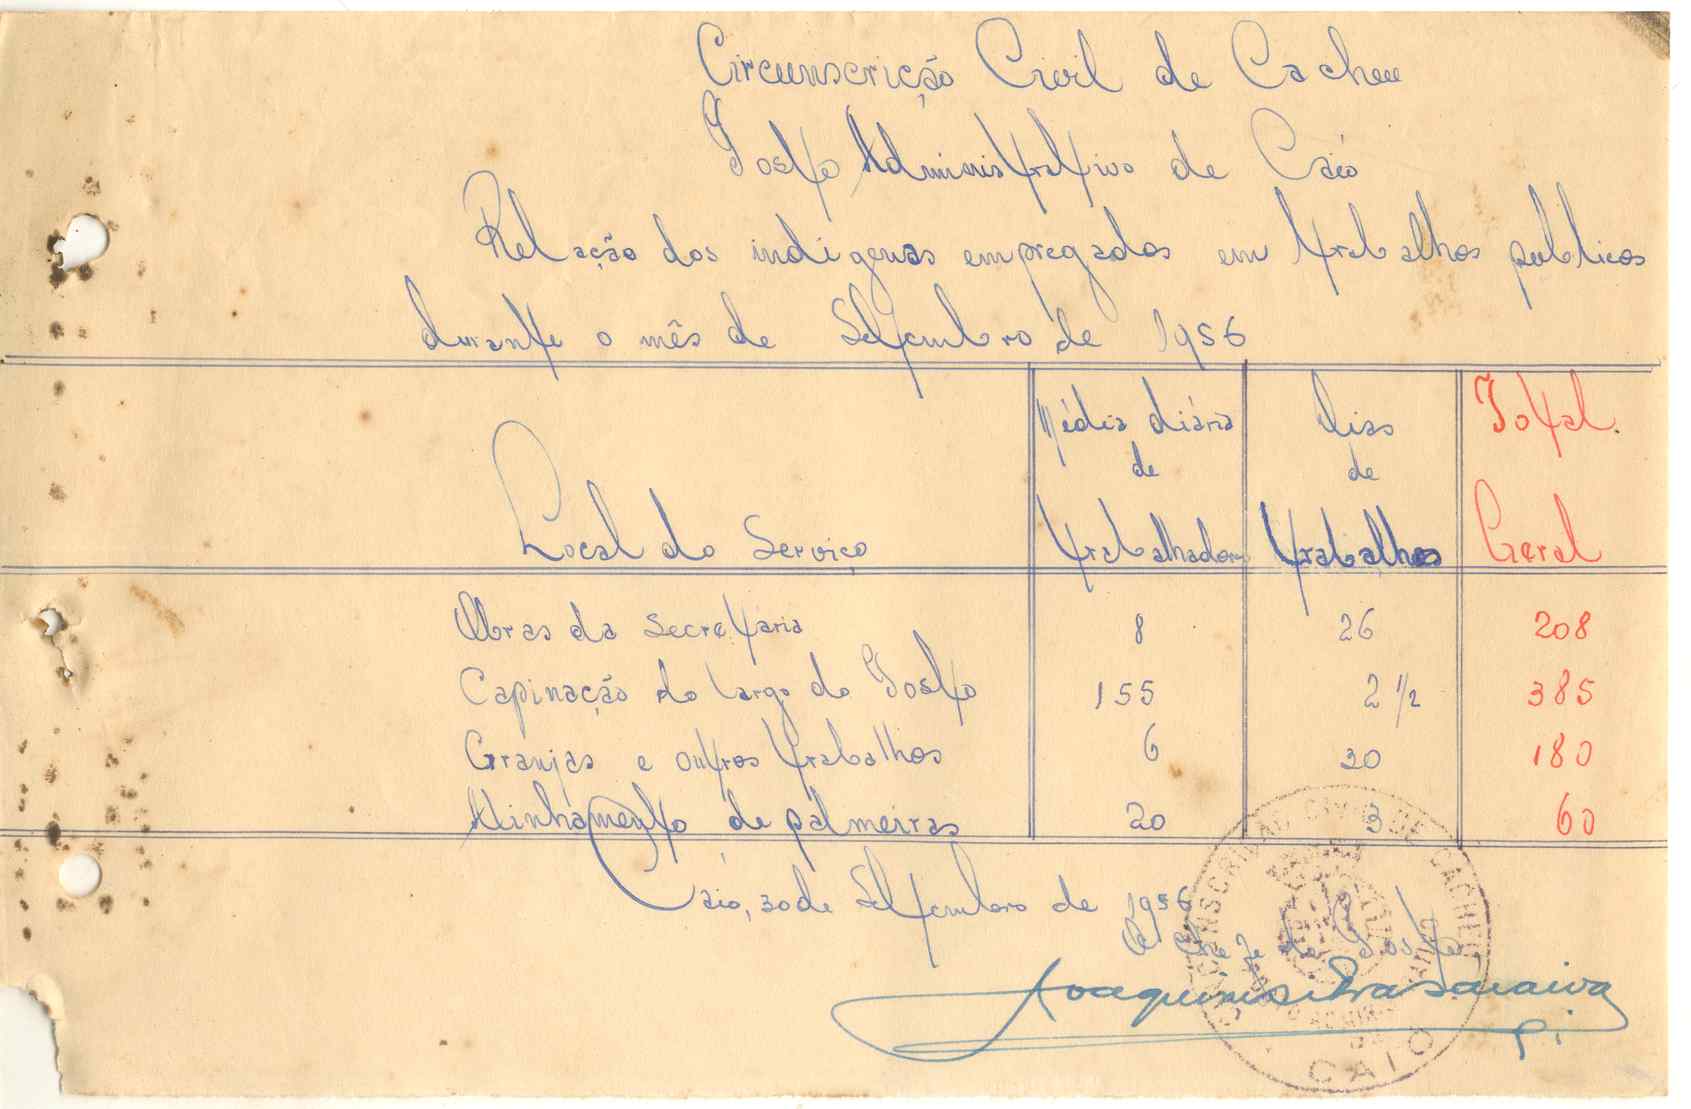 Circunscrição Civil de Cacheu
Posto Administrativo de Caió
Relação dos indigenas empregados em trabalhos publicos
durante o mês de Setembro de 1956
Local do Serviço Média diária de trabalhadores Dias de trabalhos Total Geral
Obras da Secretária 8 26 208
Capinação do largo do Posto 155 2 1/2 385
Granjas e outros trabalhos 6 30 180
Alinhamento de palmeiras 20 3 60
Caió, 30 de Setembro de 1956
O Chefe do Posto
Joaquim Silva Saraiva
CIRCUNSCRIÇÃO CIVIL DE CACHEU
CAIO